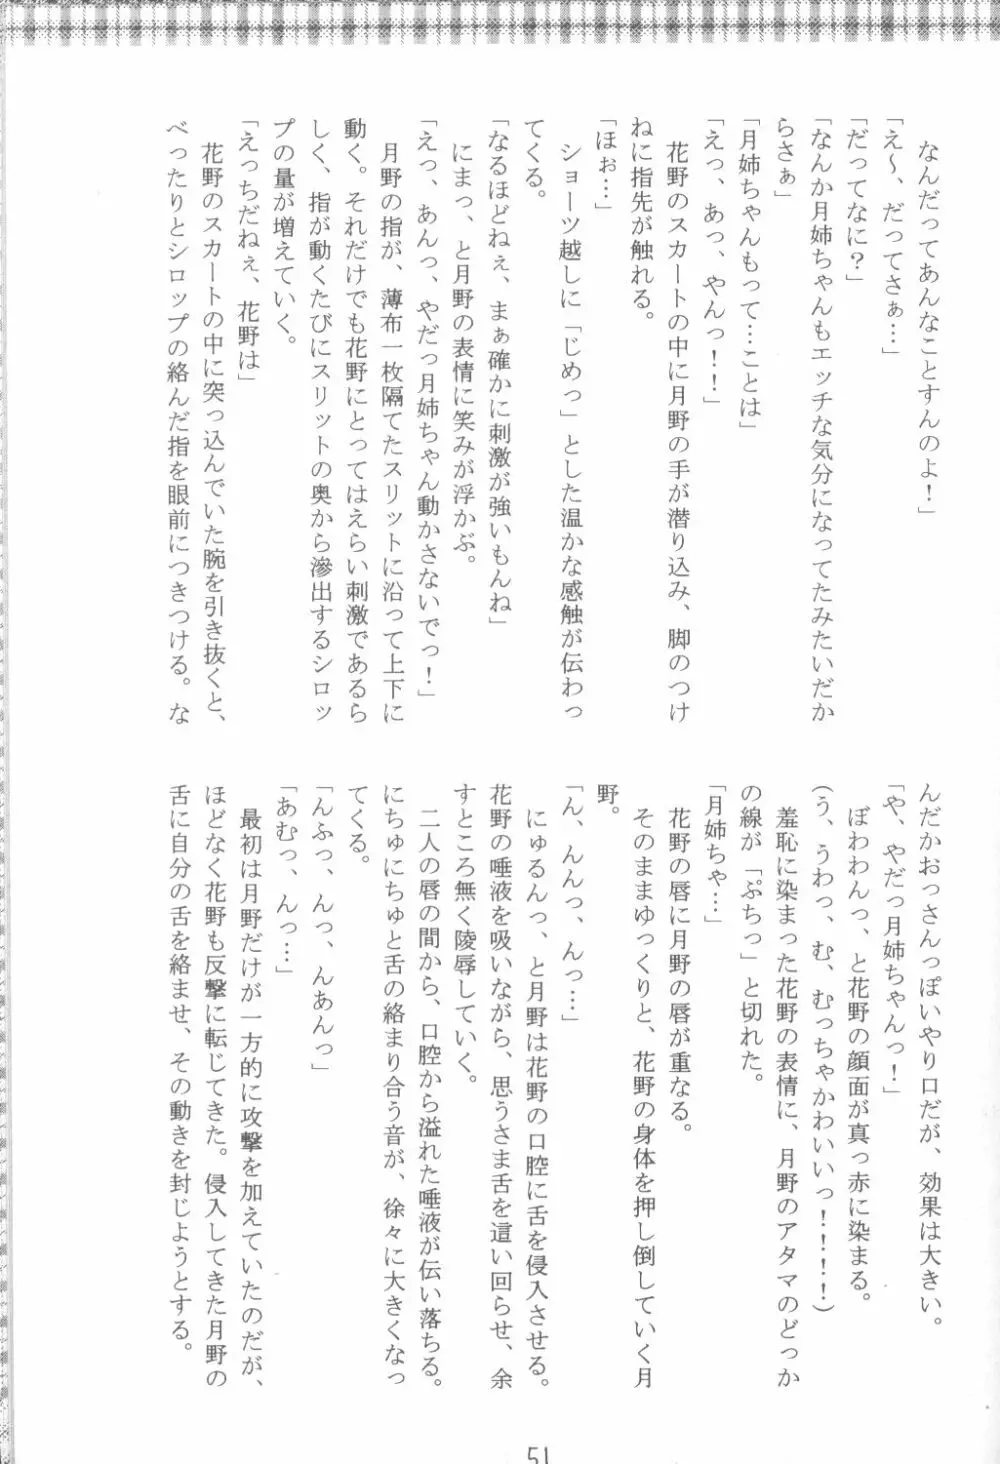 なんだってあんなことすんのよ！」
「え〜、だってさぁ…」
「だってなに？」
「なんか月姉ちゃんもエッチな気分になってたみたいだか
らさぁ」
「月姉ちゃんもって…ことは」
「えっ、あっ、やんっ！！」
花野のスカートの中に月野の手が潜り込み、脚のつけ
ねに指先が触れる。
「ほぉ…」
ショーツ越しに「じめっ」とした温かな感触が伝わっ
てくる。
「なるほどねぇ、まぁ確かに刺激が強いもんね」
にまっ、と月野の表情に笑みが浮かぶ。
「えっ、あんっ、やだっ月姉ちゃん動かさないでっ！」
月野の指が、薄布一枚隔てたスリットに沿って上下に
動く。それだけでも花野にとってはえらい刺激であるら
しく、指が動くたびにスリットの奥から滲出するシロッ
プの量が増えていく。
「えっちだねぇ、花野は」
花野のスカートの中に突っ込んでいた腕を引き抜くと、
べったりとシロップの絡んだ指を眼前につきつける。な
んだかおっさんっぽいやり口だが、効果は大きい。
「や、やだっ月姉ちゃんっ！」
ぼわわんっ、と花野の顔面が真っ赤に染まる。
（う、うわっ、む、むっちゃかわいいっ！！！！）
羞恥に染まった花野の表情に、月野のアタマのどっか
の線が「ぷちっ」と切れた。
「月姉ちゃ…」
花野の唇に月野の唇が重なる。
そのままゆっくりと、花野の身体を押し倒していく月
野。
「ん、んんっ、んっ…」
にゅるんっ、と月野は花野の口腔に舌を侵入させる。
花野の唾液を吸いながら、思うさま舌を這い回らせ、余
すところ無く陵辱していく。
二人の唇の間から、口腔から溢れた唾液が伝い落ちる。
にちゅにちゅと舌の絡まり合う音が、徐々に大きくなっ
てくる。
「んふっ、んっ、んあんっ」
「あむっ、んっ…」
最初は月野だけが一方的に攻撃を加えていたのだが、
ほどなく花野も反撃に転じてきた。侵入してきた月野の
舌に自分の舌を絡ませ、その動きを封じようとする。
51